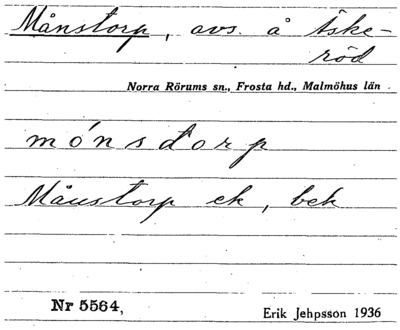 Månstorp, avs. å Äske-
röd
Norra Rörums sn., Frosta hd., Malmöhus län
mónsdorp
Månstorp ek, bek
Nr 5564,
Erik Jehpsson 1936